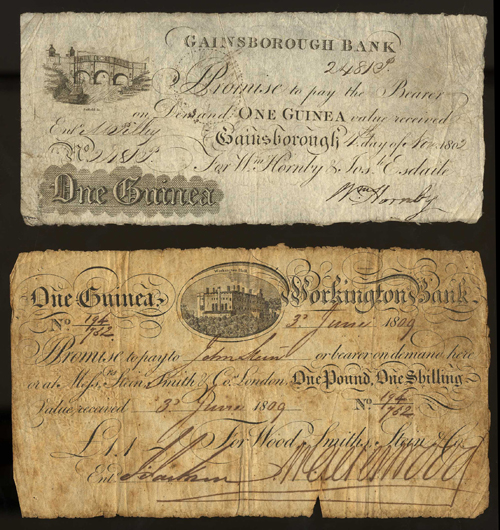 GAINSBOROUGH BANK
2481
I Promise to pay the Bearer
on Demand ONE GUINEA value received
Gainsborough day of 1802
No. 2481
For Wm. Hornby & Jos. Esdaile
One Guinea
Wm Hornby
One Guinea
Workington Bank
Workington Hall
No. 194/762
3d June 1809
I Promise to pay to John Stein or bearer on demand here
or at Messrs. Stein Smith & Co. London, One Pound, One Shilling
Value received 3d June 1809 No. 194/762
£1.1 For Wood, Smith, Stein & Co.
Ent.